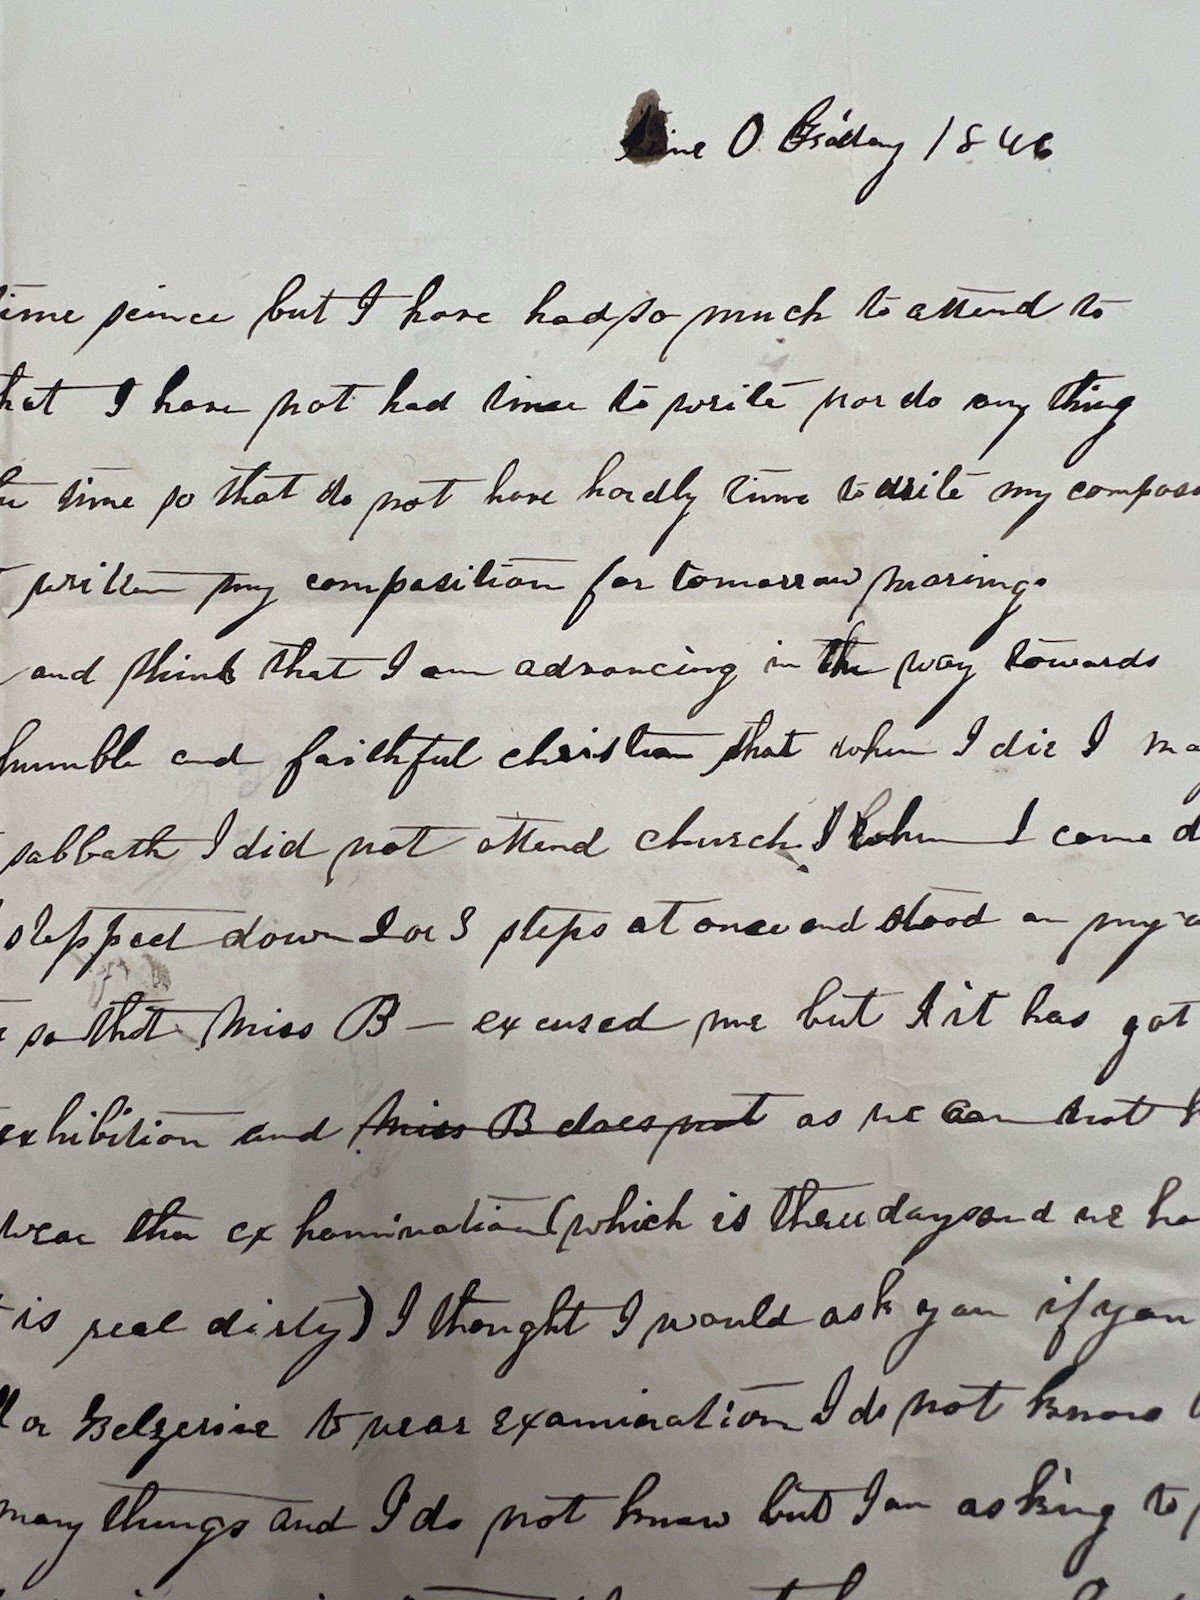 O Friday 1846
time seince but I have had so much to attend to
that I have not had time to write nor do any thing
time so that do not have hardly time to write my compos
written my composition for tomorrow morining.
and think that I am advancing in the way towards
humble and faithful christian that when I die I ma
sabbath I did not attend church I when I come d
stepped down 2 or 3 steps at once and stood on my
so that Miss B — excused me but I it has got
exhibition and Miss B does not as we can not
wear the exhamination (which is three days and we ha
is real dirty) I thought I would ask you if you
or to wear examination I do not know
many things and I do not know but I am asking to